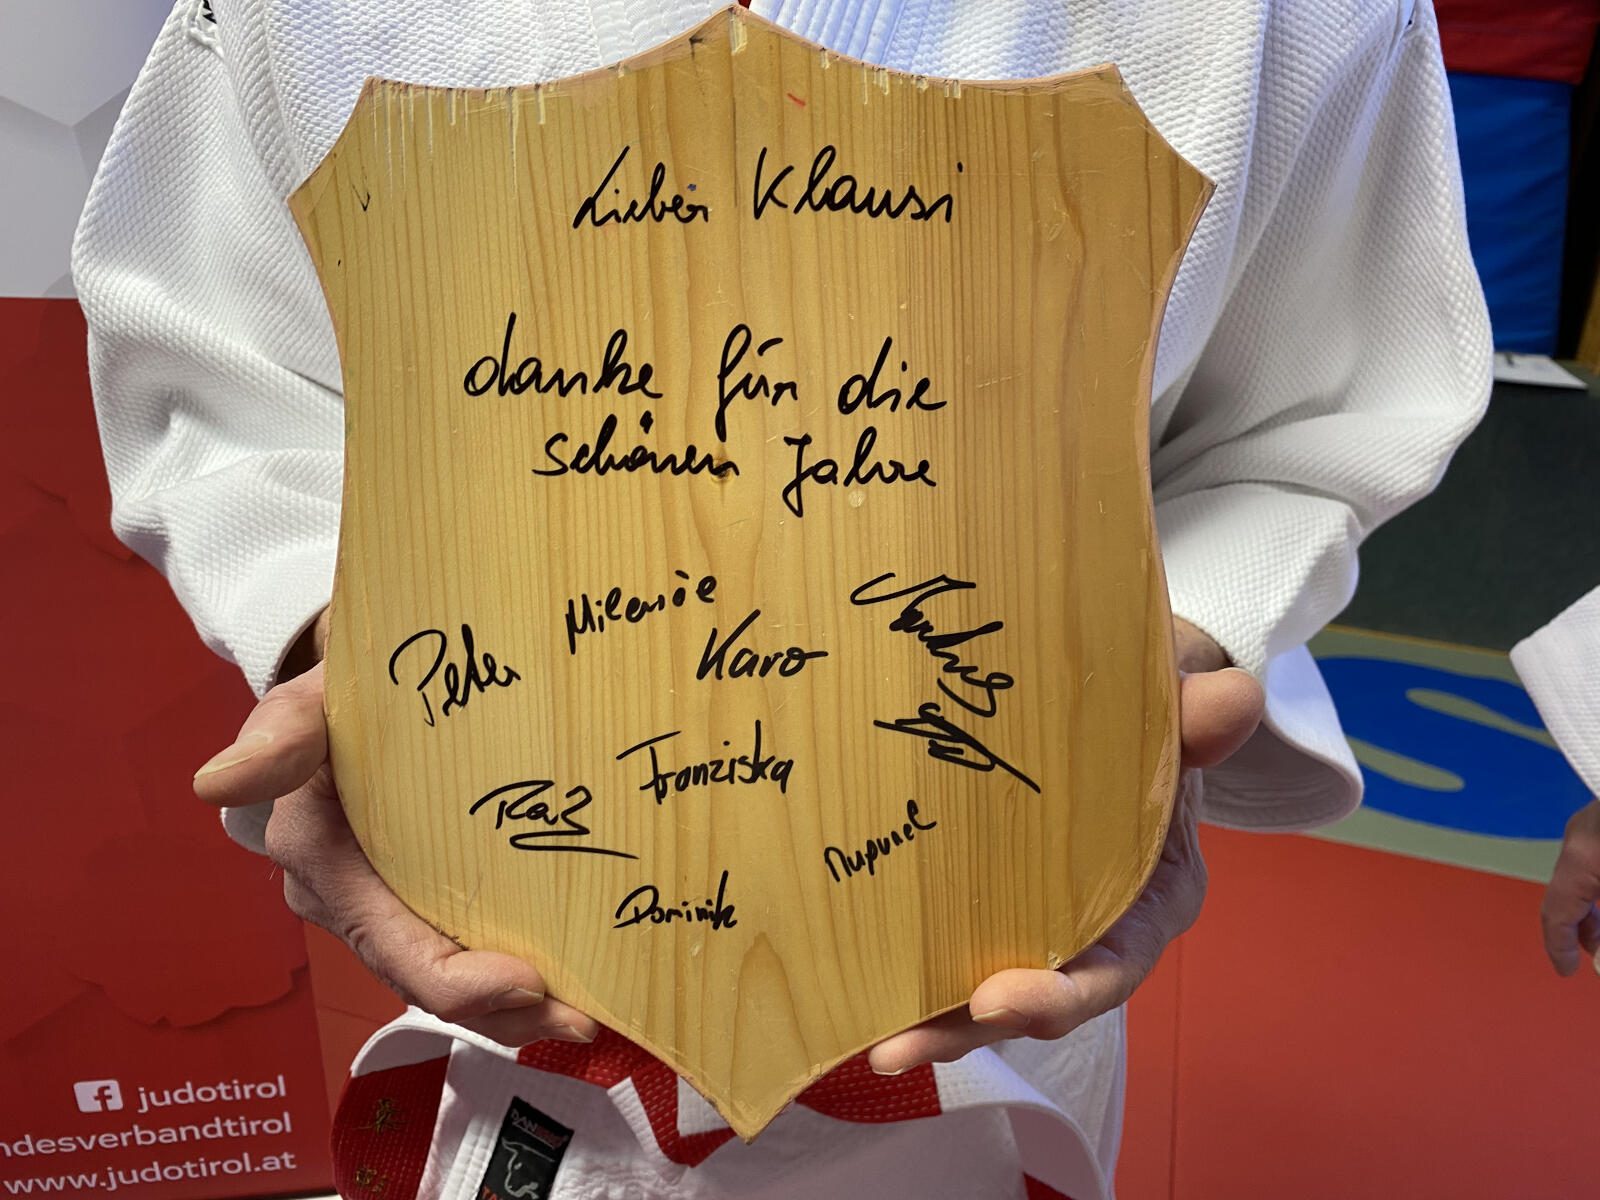 Lieber Klausi
danke für die
schönen Jahre
Milenóe
Peter
Karo
Franziska
Dominik
judotirol
ndesverbandtirol
www.judotirol.at
DAN